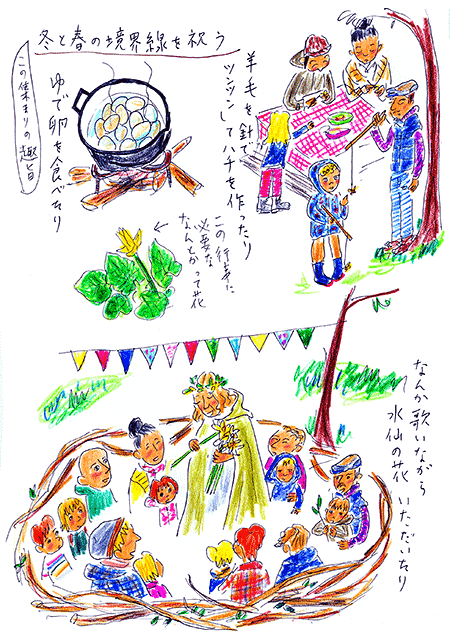 冬と春の境界線を祝う
この集まりの趣旨
羊毛を針で
ツンツンしてハチを作ったり
ゆで卵を食べたり
この行事に
必要な
なんとかって花
なんか歌いながら
水仙の花 いただいたり